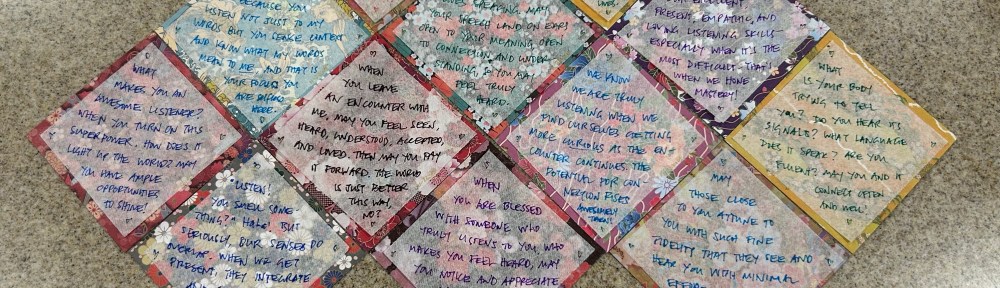 BECAUSE YOU
LISTEN NOT JUST TO MY
WORDS BUT YOU SENSE CONTEXT
AND KNOW WHAT MY WORDS
MEAN TO ME. AND THAT IS
YOUR FOCUS YOU
ARE
HERE.
MAY
YOUR SPEECH LAND ON EARS
OPEN TO YOUR MEANING OPEN
TO CONNECTION AND UNDER-
STANDING, SO YOU MAY
FEEL TRULY
HEARD.
LIVES.
PRESENT, EMPATHIC, AND
LOVING LISTENING SKILLS
ESPECIALLY WHEN IT'S THE
MOST DIFFICULT. THAT'S
WHEN WE HONE
MASTERY!
WHAT
MAKES YOU AN
AWESOME LISTENER?
WHEN YOU TURN ON THIS
SUPERPOWER. HOW DOES IT
LIGHT UP THE WORLD? MAY
YOU HAVE AMPLE
OPPORTUNITIES
TO SHINE!
WHEN
YOU LEAVE
AN ENCOUNTER WITH
ME, MAY YOU FEEL SEEN,
HEARD, UNDERSTOOD, ACCEPTED,
AND LOVED. THEN MAY YOU PAY
IT FORWARD. THE WORLD
IS JUST BETTER
THIS WAY,
NO?
WE KNOW
WE ARE TRULY
LISTENING WHEN WE
FIND OURSELVES GETTING
MORE CURIOUS AS THE EN-
COUNTER CONTINUES. THE
POTENTIAL FOR CON
NECTION RISES
AWESOMELY
THEN!
WHAT
IS YOUR BODY
TRYING TO TELL
YOU? DO YOU HEAR ITS
SIGNALS? WHAT LANGUAGE
DOES IT SPEAK? ARE YOU
FLUENT? MAY YOU AND IT
CONNECT OFTEN
AND WELL!
"LISTEN!
YOU SMELL SOME
THING?" HAHA. BUT
SERIOUSLY, OUR SENSES DO
OVERLAP. WHEN WE GET
PRESENT, THEY INTEGRATE
WHEN
YOU ARE BLESSED
WITH SOMEONE WHO
TRULY LISTENS TO YOU WHO
MAKES YOU FEEL HEARD, MAY
YOU NOTICE AND APPRECIATE
MAY
THOSE CLOSE
TO YOU ATTUNE TO
YOU WITH SUCH FINE
FIDELITY THAT THEY SEE AND
HEAR YOU WITH MINIMAL